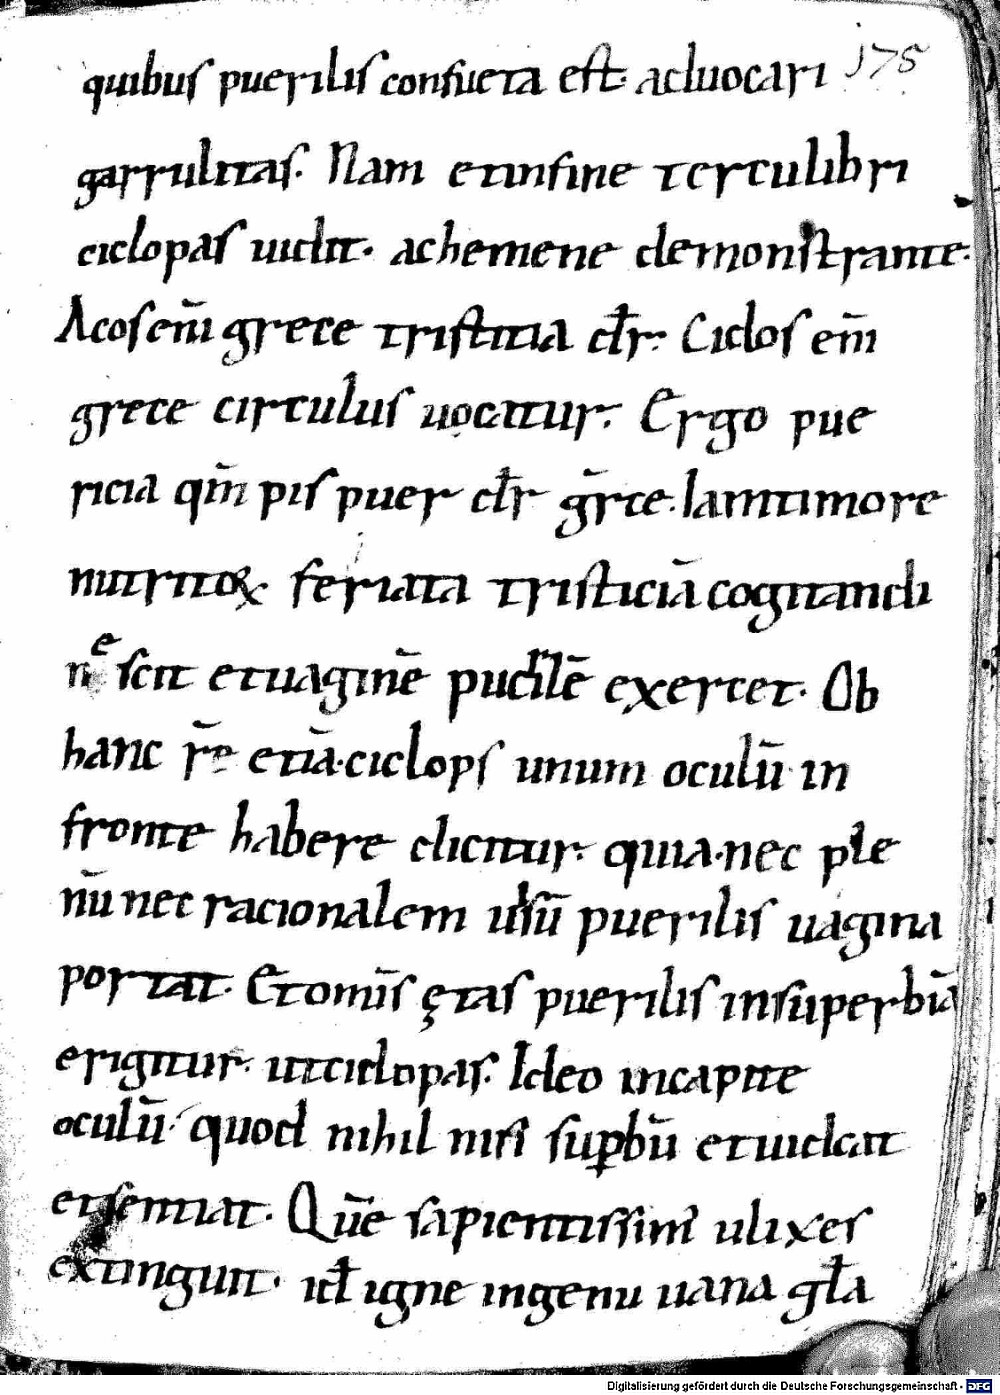 175
quibus puerilis consueta est aduocari
garrulitas. Nam et in fine terculibri
ciclopas uidit. achemene demonstrante.
Acos em̄ grece tristitia dr̄. Ciclos em̄
grece circulus uocatur. Ergo pue
ricia qm̄ pis puer dr̄ gr̄ce. iam timore
nutritoꝝ. feriata tristiciā cogitandi
nescit et uaginē puerilē exercet. Ob
hanc rē etiā ciclops unum oculū in
fronte habere dicitur. quia nec ple
nū nec racionalem usū puerilis uagina
portat. Et omīs ętas puerilis in superbiā
erigitur. ut ciclopas. Ideo in capite
oculū quod nihil nisi suꝑbū et uideat
et sentiat. Quē sapientissimꝰ ulixes
extinguit. id ē igne ingenii uana gl̄a
Digitalisierung gefördert durch die Deutsche Forschungsgemeinschaft - DFG